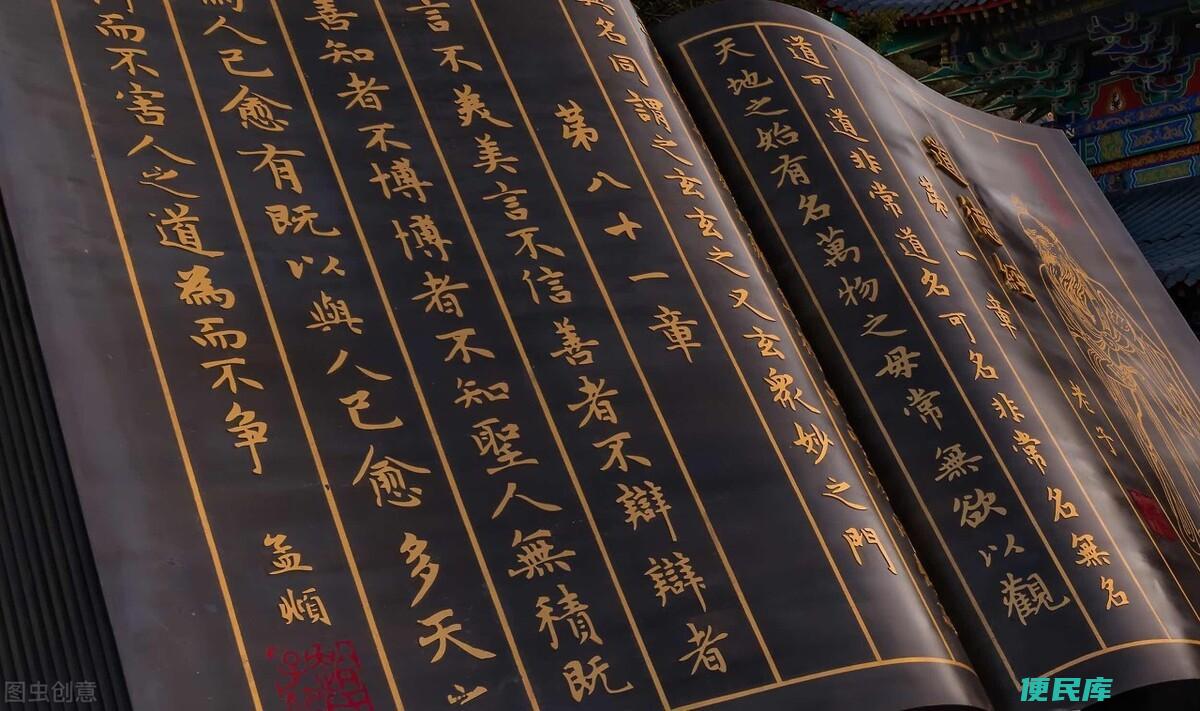 老子
道德經
第一章
道可道非常道名可名非常名無名
天地之始有名萬物之母常無欲以觀
名同謂之玄玄之又玄眾妙之門
第八十一章
言不美美言不信善者不辯辯者
善知者不博博者不知聖人無積既
人已愈有既以與人已愈多天
而不害人之道為而不争
孟頫
图虫创意
便民库